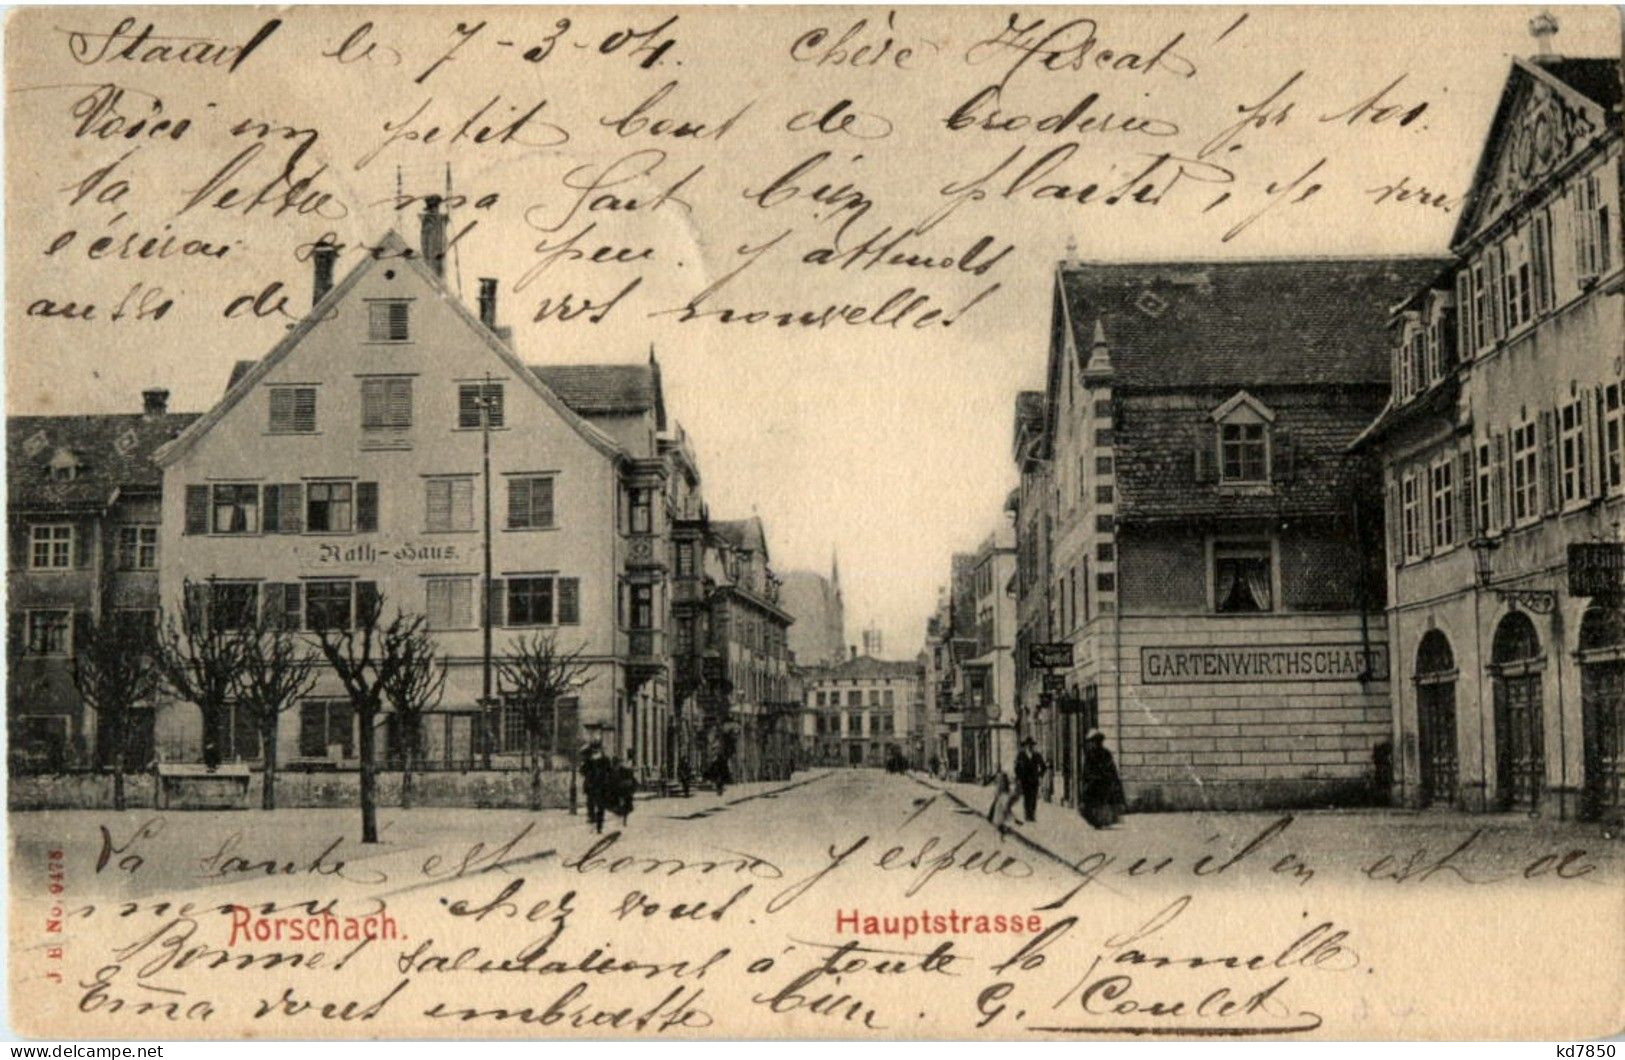 Staad le 7-3-04. chère
Voici un petit bout de broderie pr toi.
ta lettre ma fait bien plaisir, je vou
écrirai sout peu. j'attends
aussi de vos nouvelles
Rath-Haus.
GARTENWIRTHSCHAFT
La santé est bonne j'éspère qu'il en est de
meme chez vous.
J B No. 9478
Rorschach.
Hauptstrasse
Bonnes salutations à toute la famille.
Ema vous embrasse bien. G. Coulet
kd7850